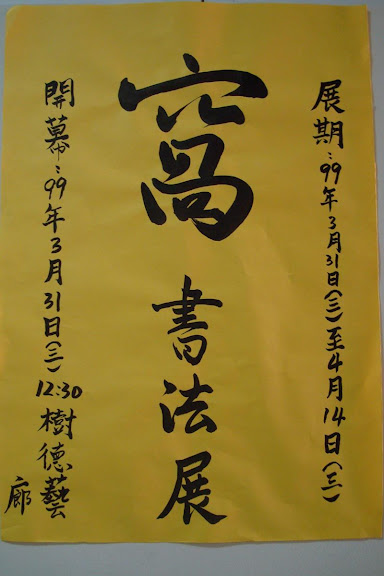 展期：99年3月31日(三)至4月14日(三)
窩 書法展
開幕：99年3月31日(三) 12:30 樹德藝廊